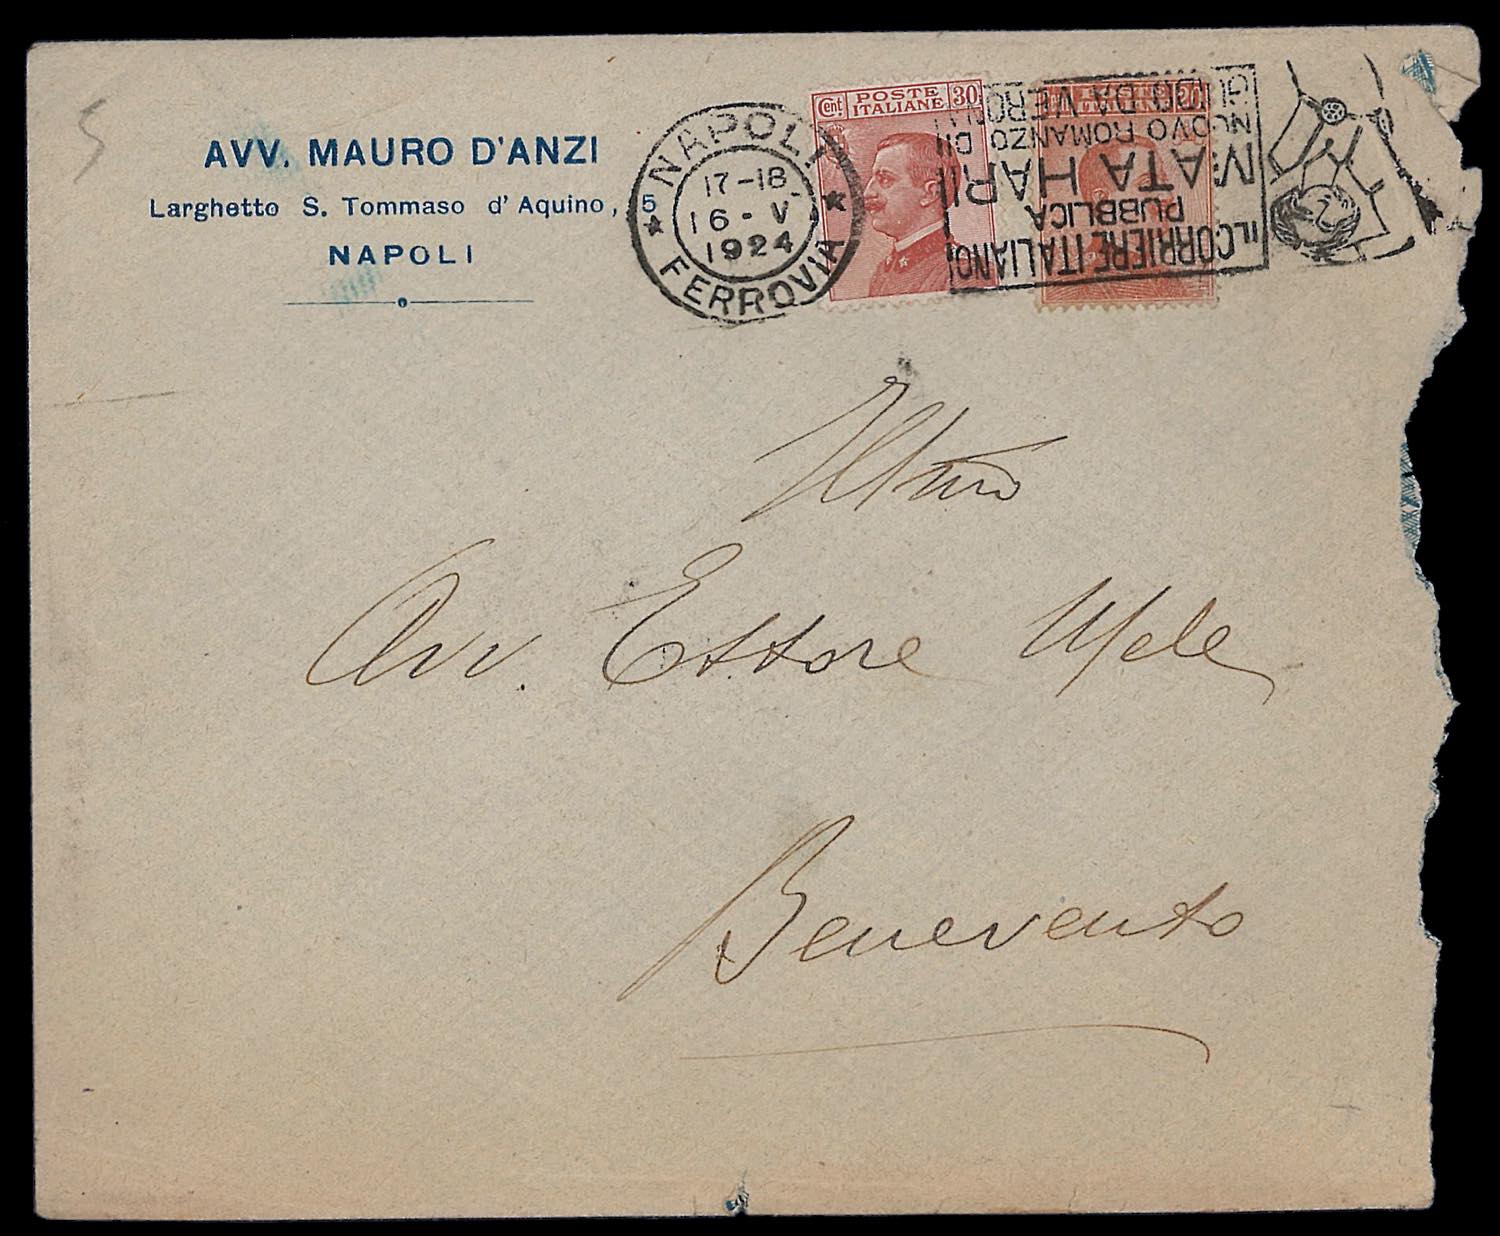 AVV. MAURO D'ANZI
Larghetto S. Tommaso d'Aquino, 5
NAPOLI
NAPOLI
17-18
16-V
1924
FERROVIA
Cent POSTE ITALIANE 30
IL CORRIERE ITALIANO
PUBBLICA
MATA HARI
NUOVO ROMANZO DI
GUIDO DA VERONA
Avv. Ettore Mele
Benevento